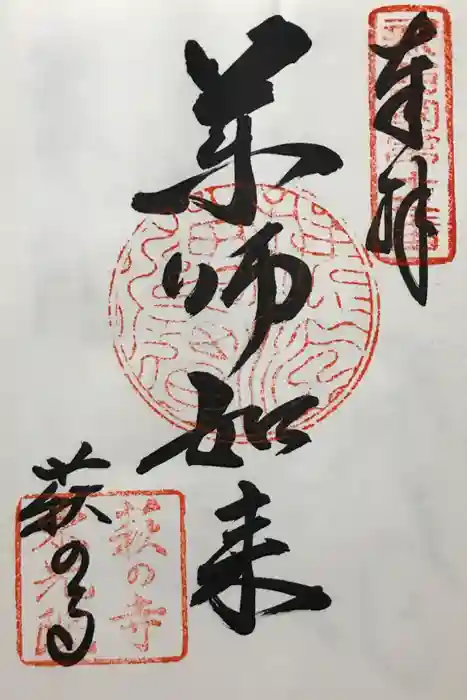 奉拝
薬師如来
萩の寺
萩の寺
東光院